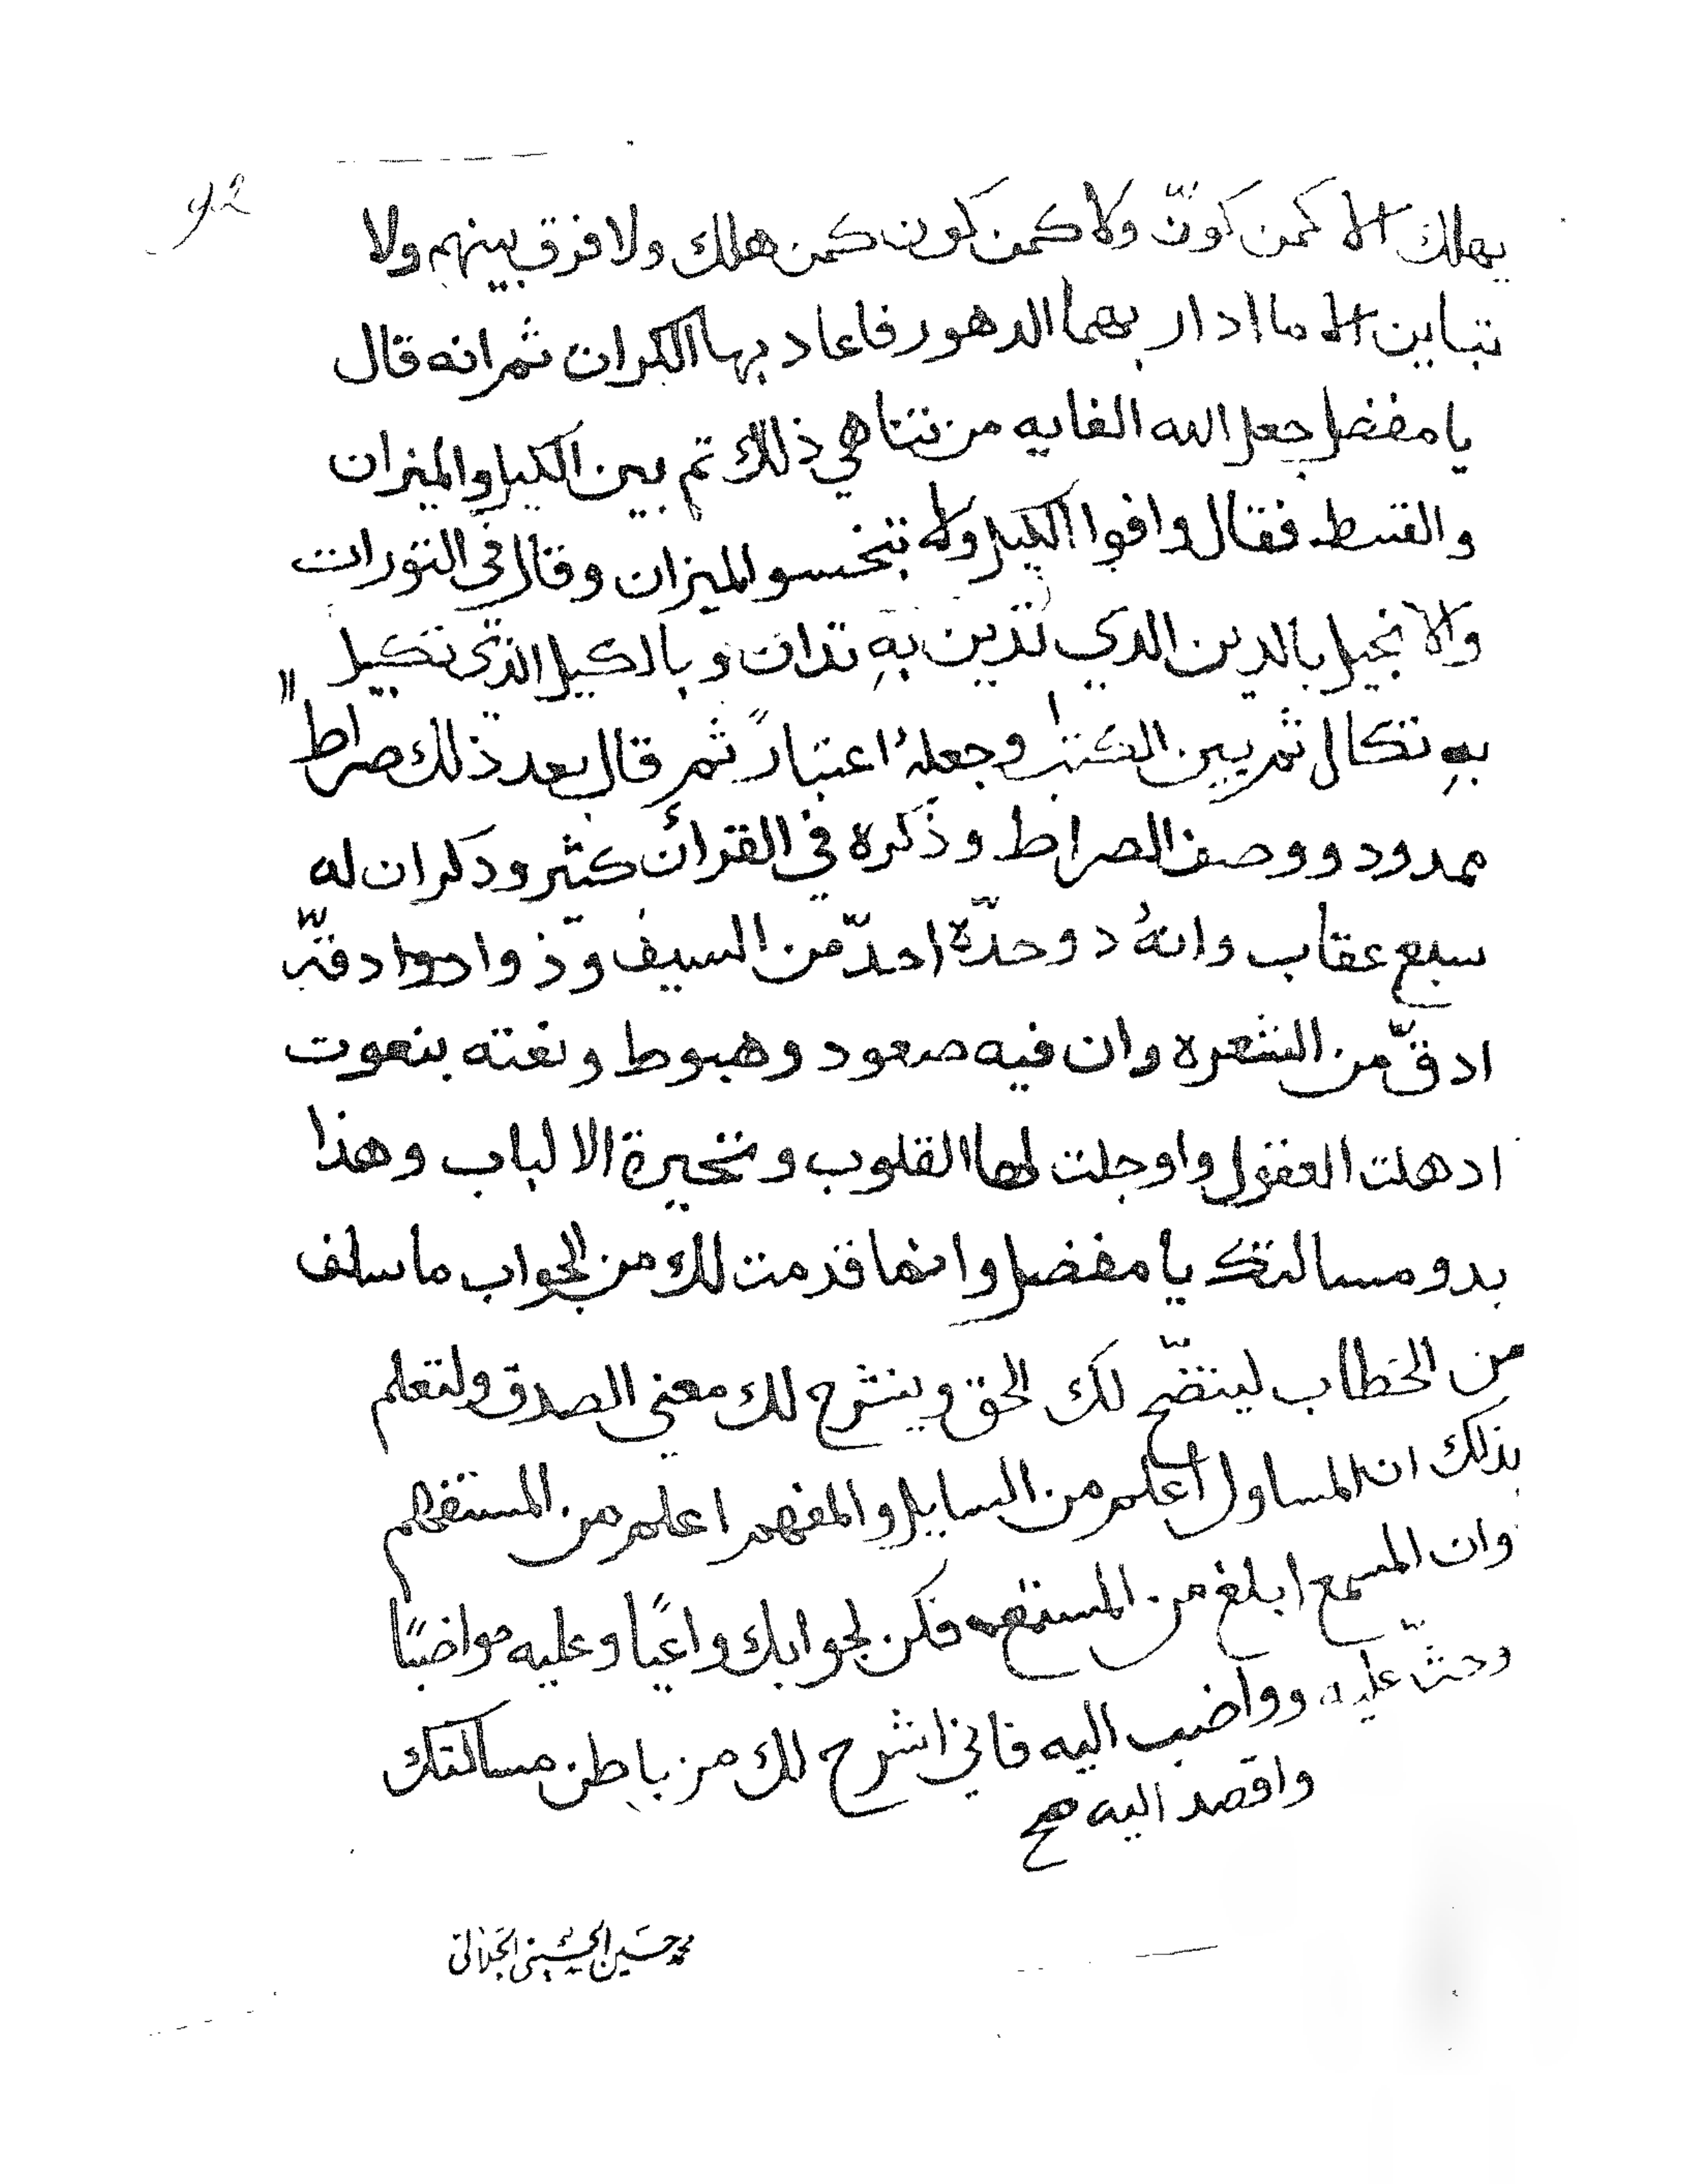 92
يهلك الا كمن كوّن ولا كمن كون كمن هلك ولا فرق بينهم ولا
تباين الا ما ادار بهما الدهور فاعاد بها الكران ثم انه قال
يا مفضل جعل الله الغايه من تناهي ذلك ثم بين الكيل والميزان
والقسط فقال وافوا الكيل ولا تبخسو الميزان وقال في التورات
والانجيل بالدين الدي تدين به تدان وبالكيل الذي تكيل
به تكال ثم بين الكتب وجعلهُ اعتباراً ثم قال بعد ذلك صراط
ممدود ووصف الصراط وذكره في القرأن كثير ودكر ان له
سبع عقاب وانهُ دو حدّة احدّ من السيف وذو ادقّه
ادقّ من الشعره وان فيه صعود وهبوط ونعته بنعوت
ادهلت العقول واوجلت لها القلوب وتحيرة الالباب وهذا
بدو مسالتك يا مفضل وانما قدمت لك من الجواب ما سلف
من الخطاب ليتضّح لك الحق وينشرح لك معني الصدق ولتعلم
بذلك ان المساول اعلم من السايل والمفهم اعلم من المستفهم
وان المسمع ابلغ من المستمع فكن لجوابك واعيًا وعليه مواضبًا
وحثّ عليه وواضب اليه فاني اشرح لك من باطن مسالتك
واقصد اليه صح
محمد حسين الحسيني الجلالي